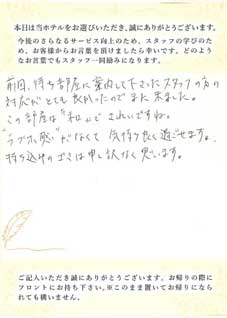 本日は当ホテルをお選びいただき、誠にありがとうございます。
今後のさらなるサービス向上のため、スタッフの学びのため、お客様からお言葉を頂けましたら幸いです。どのようなお言葉でもスタッフ一同励みになります。
前回、待ち部屋に案内して下さったスタッフの方の
対応がとても良かったのでまた来ました。
この部屋は"和"できれいですね。
"ラブホ感"がなくて気持ち良く過ごせます。
持ち込みのゴミは申し訳なく思います。
ご記入いただき誠にありがとうございます。お帰りの際に
フロントにお持ち下さい。※このまま置いてお帰りになら
れても構いません。